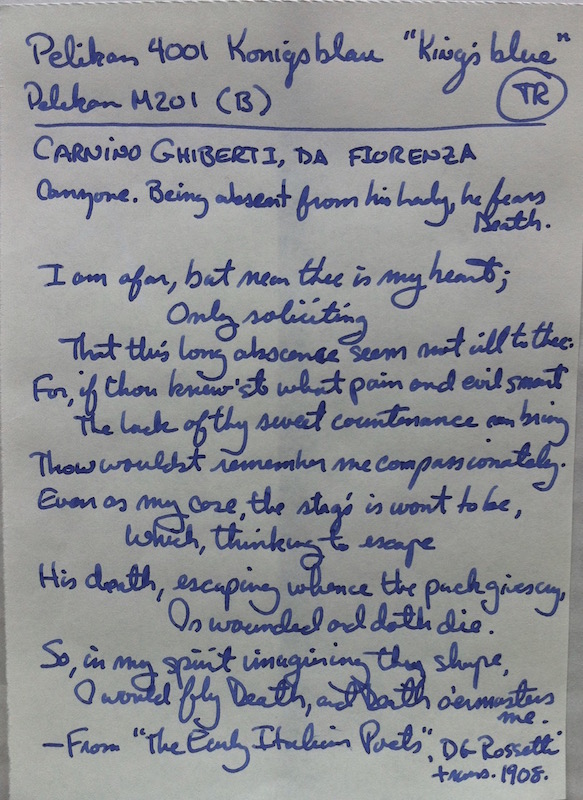 Pelikan 4001 Konigsblau "King's blue"
Pelikan M201 (B) TR
CARNINO GHIBERTI, DA FIORENZA
Canzone. Being absent from his lady, he fears
Death.
I am afar, but near thee is my heart;
Only soliciting
That this long abscence seem not ill to thee:
For, if thou knew'st what pain and evil smart
The lack of thy sweet countenance can bring
Thow wouldst remember me compassionately.
Even as my case, the stag's is wont to be,
Which, thinking to escape
His death, escaping whence the pack gives cry,
Is wounded and doth die.
So, in my spirit imagining thy shape,
I would fly Death, and Death o'ermasters
me.
—From "The Early Italian Poets", DG Rossetti
trans. 1908.